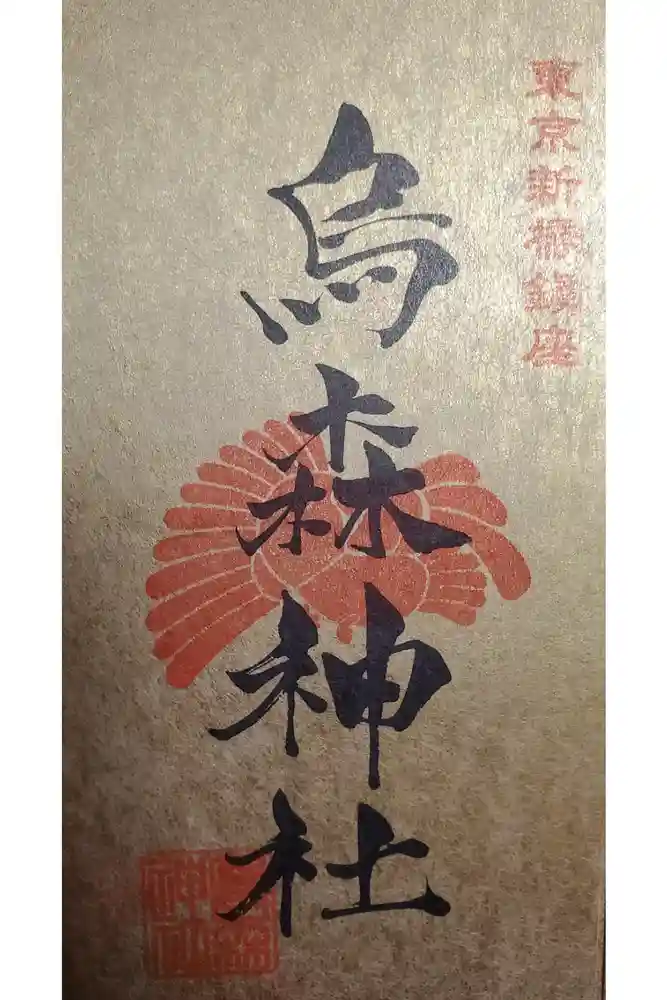 東京新橋鎮座
烏森神社